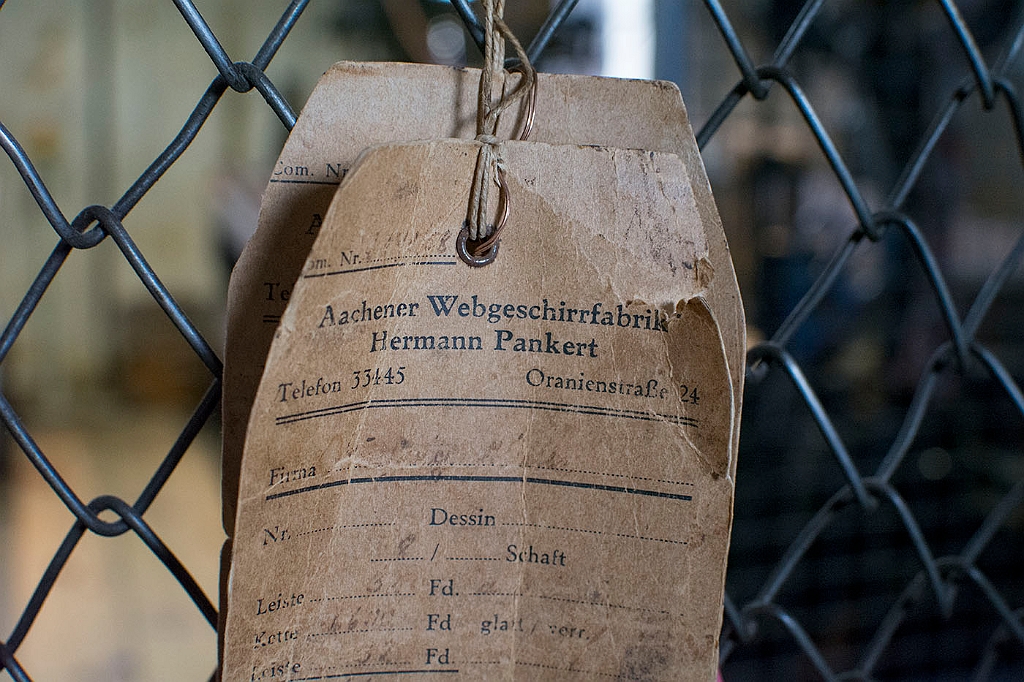 Com. Nr.
Te
om. Nr.
Aachener Webgeschirrfabrik
Hermann Pankert
Telefon 33445 Oranienstraße 24
Firma
Nr. Dessin
/ Schaft
Leiste Fd.
Kette Fd glatt / verr.
Leiste Fd.